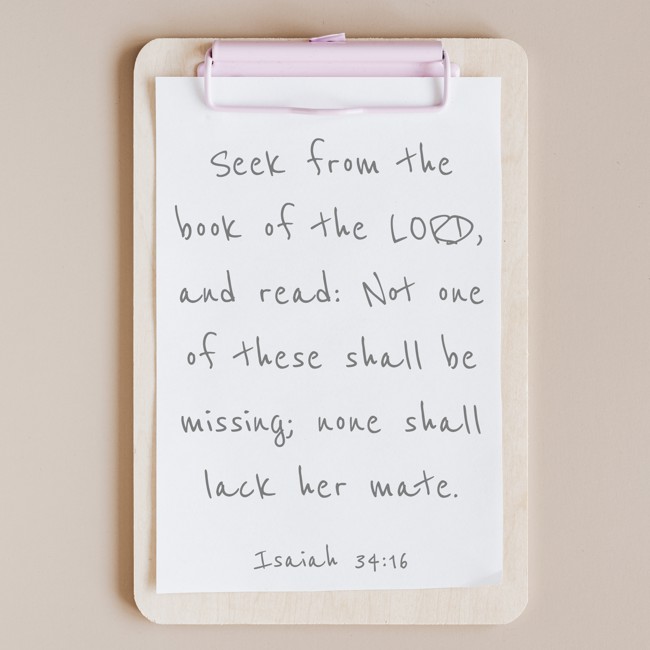 Seek from the
book of the LORD,
and read: Not one
of these shall be
missing; none shall
lack her mate.
Isaiah 34:16